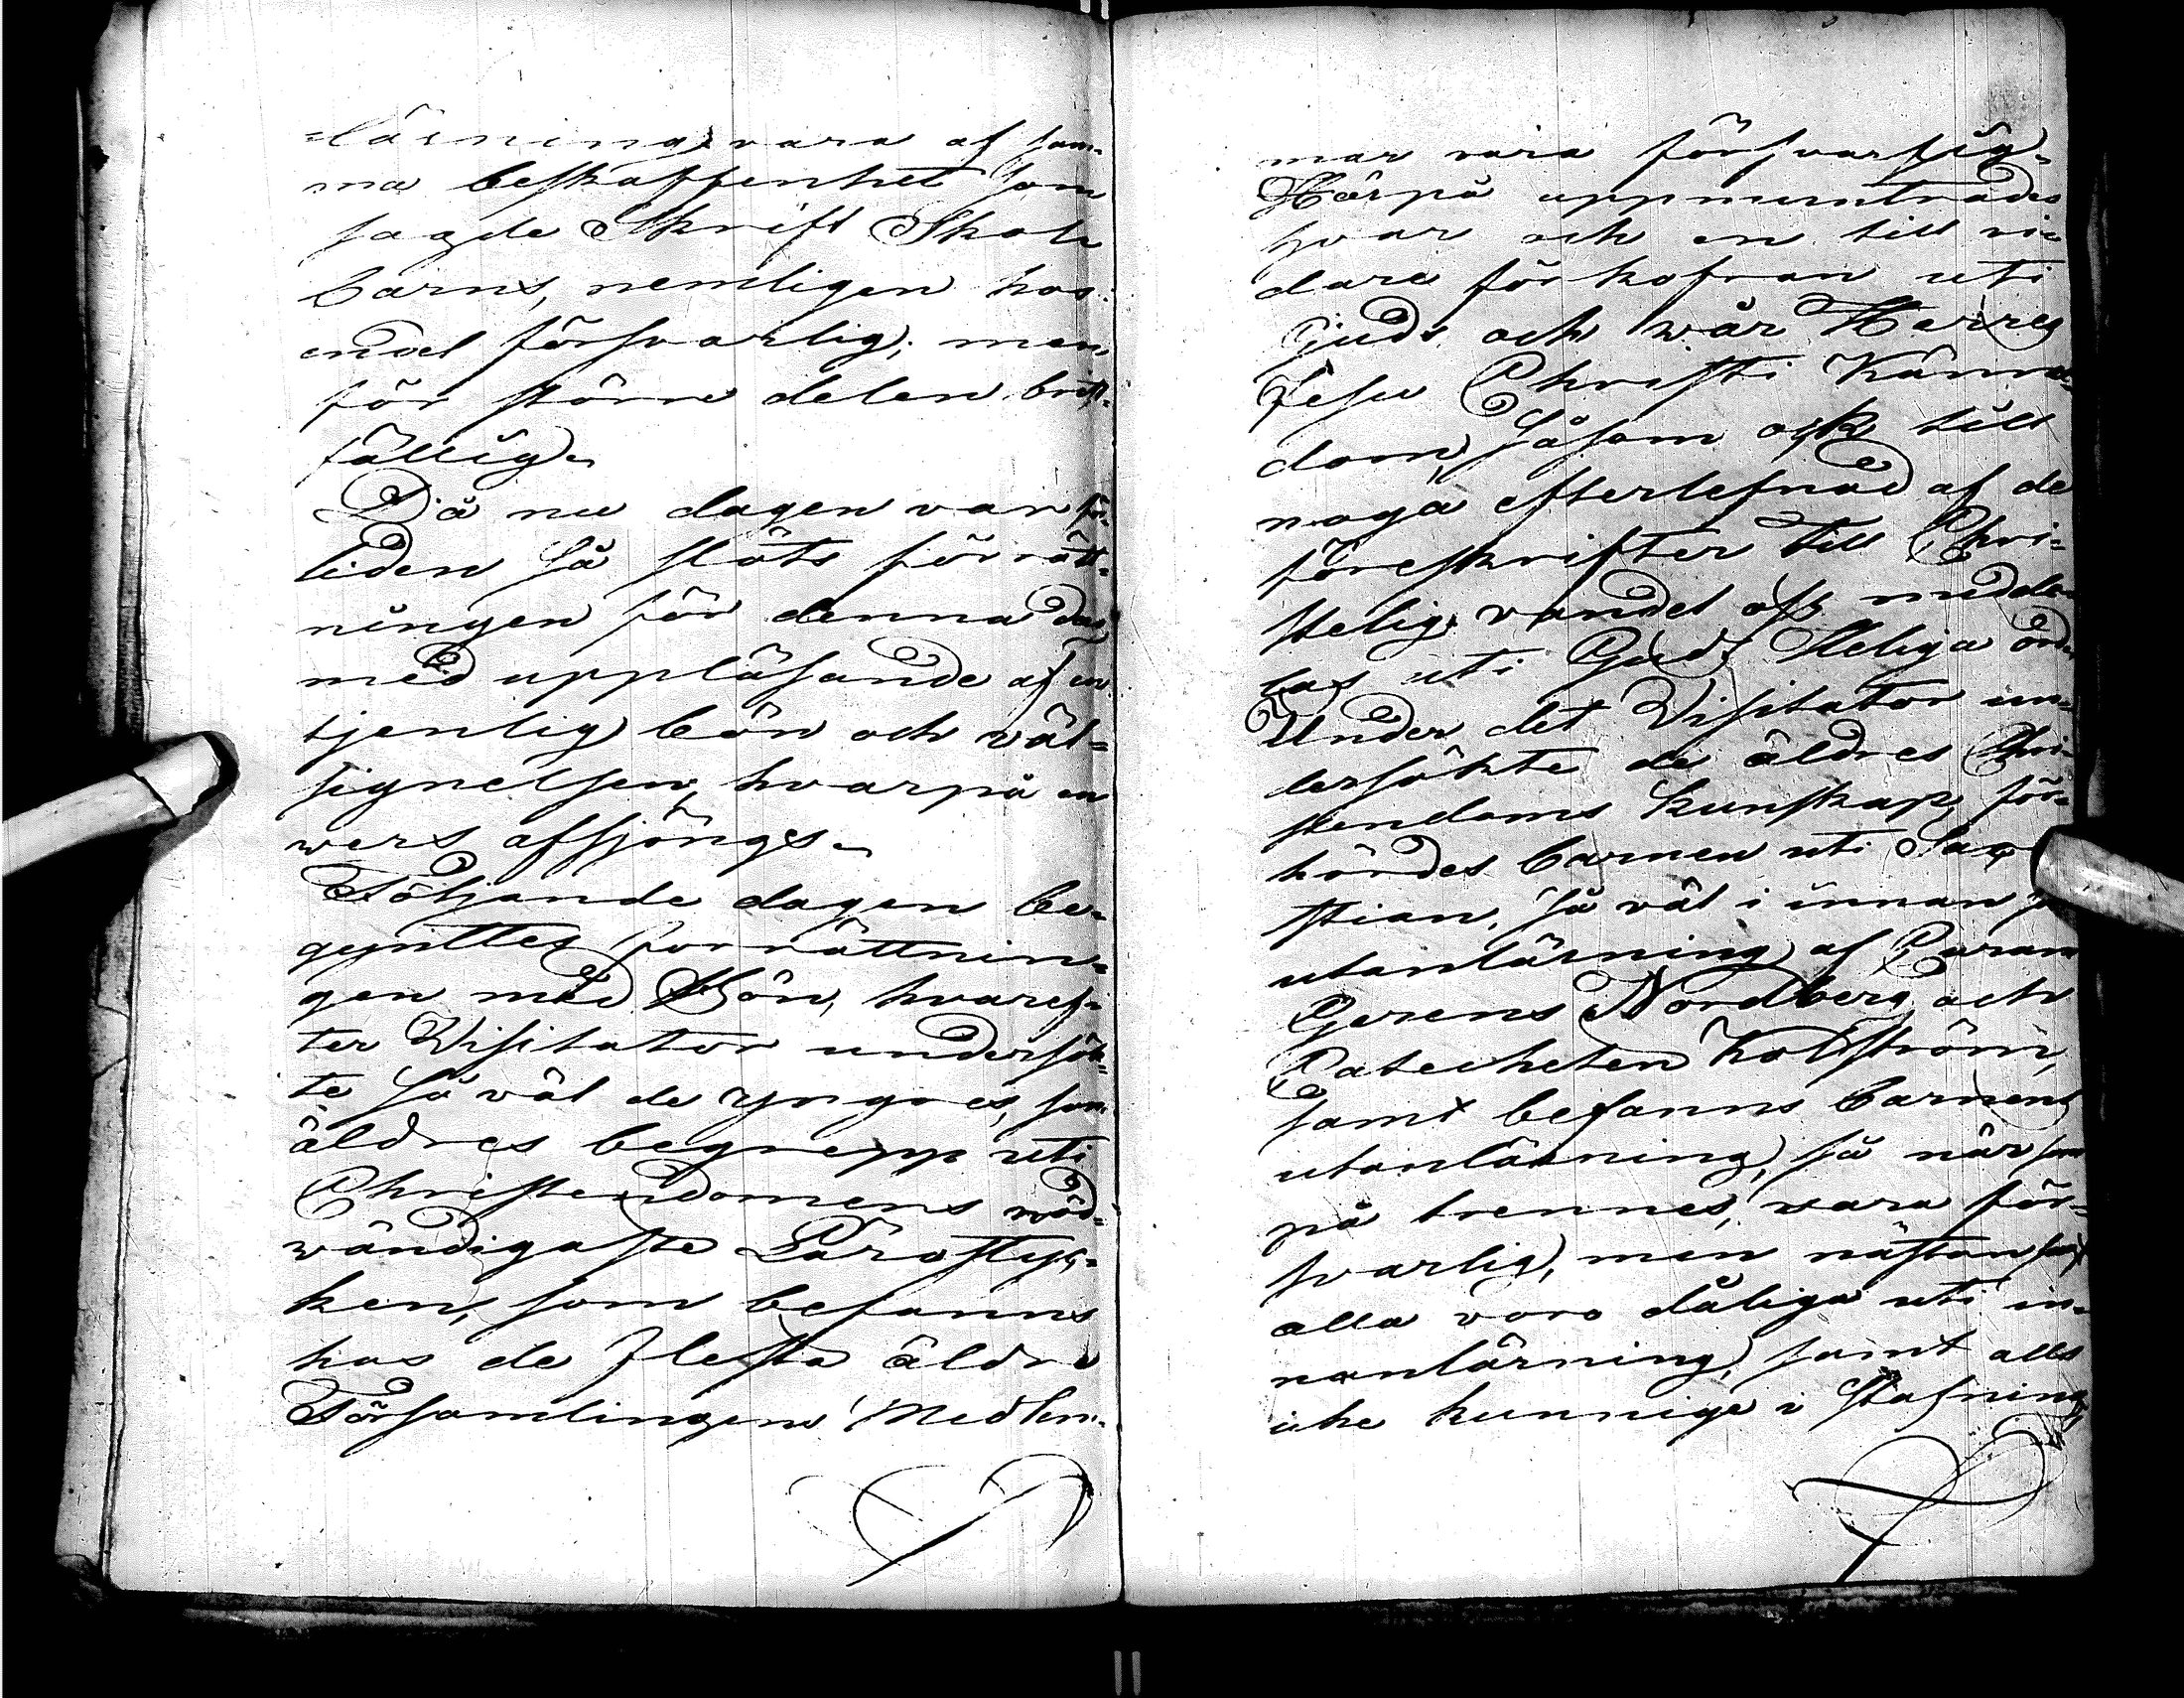 =läsning vara af sam-
ma beskaffenhet som
sagde Skrift Skole
barns, nemligen hos
endel försvarlig, men
för större delen brist-
fällig.
Då nu dagen var för-
liden så slöts förrätt-
ningen för denna dag
med uppläsande af en
tjenlig bön och väl=
signelsen, hvarpå en
wers afsjöngs.
Följande dagen be-
gynttes förrättnin-
gen med Bön, hvaref-
ter Visitator undersök-
te så väl de yngres, som
äldres begrepp uti
Christendomens nöd-
wändigaste Lärostyc-
ken, som befanns
hos de flesta äldre
Församlingens Medlem-
mar vara försvarlig.
Härpå uppmuntrades
hvar och en till vi-
dare förkofran uti
Guds och wår Herres
Jesu Christi Känne-
dom, såsom ock till
noga efterlefnad af de
föreskrifter till Chri-
stelig vandel oss medde-
las uti Guds Heliga ord.
Under det Visitator un-
dersökte de äldres Chri-
stendoms kunskap, för-
hördes barnen uti
stian, så väl i innan som
utanläsning af
Gerens Nordberg och
Catecheten Kolström,
samt befanns barnens
utanläsning, så när som
på trennes, vara för-
svarlig, men nästan
alla voro dåliga uti in-
nanläsning, samt alls
icke kunnige i stafning